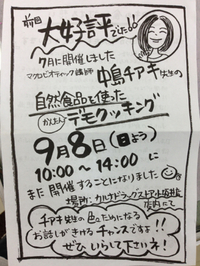 前回
大好評でした!!
7月に開催しました
マクロビオティック講師 中島チアキ先生の
自然食品を使った
かんたん デモクッキング
9月8日(日よう)
10:00〜14:00に
また開催することになりました
場所:カルナドラッグストア小坂井店
店内にて
チアキ先生の色々ためになる
お話しがきけるチャンスです!!
ぜひいらして下さいネ!